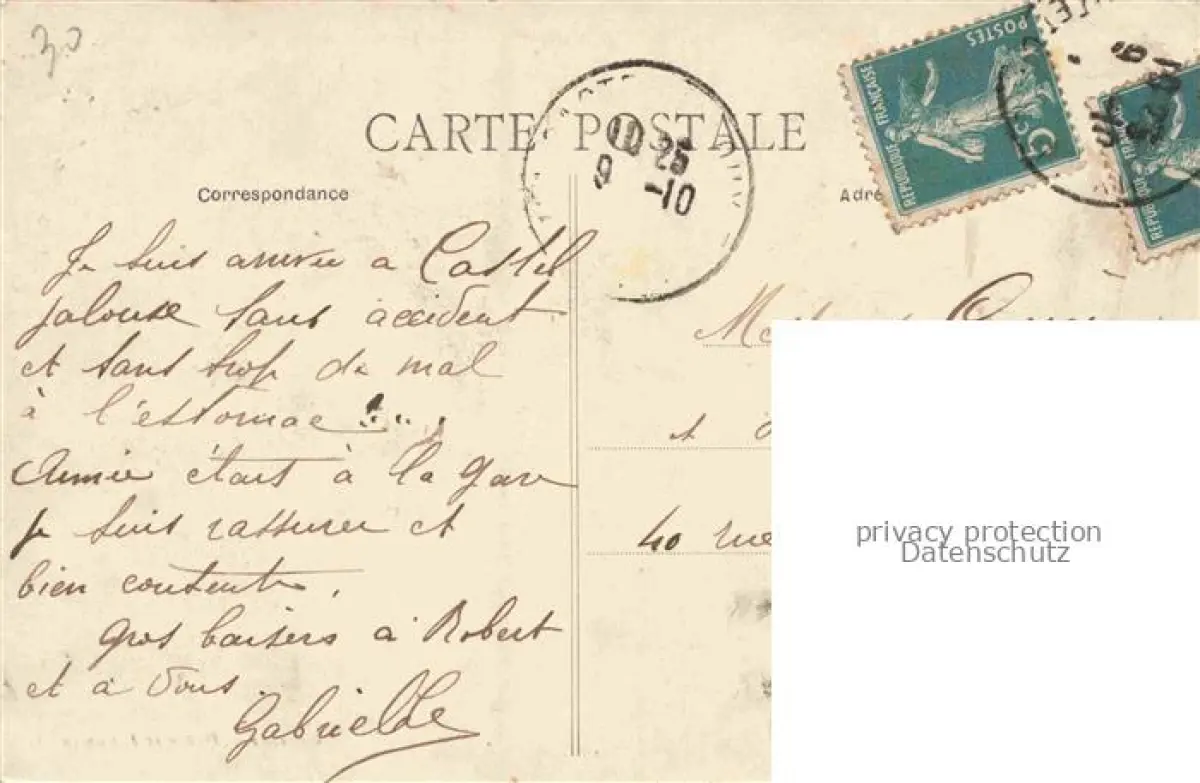 30
CARTE POSTALE
Correspondance
10 25
9 -10
POSTES
REPUBLIQUE FRANÇAISE
5c
Je suis arrivée a Castel
jalouse sans accident
et sans trop de mal
à l'estomac !...
Annie étais à la gare
je suis rassurer et
bien contente.
Gros baisers à Robert
et à vous.
Gabrielle
et
40 rue
privacy protection
Datenschutz